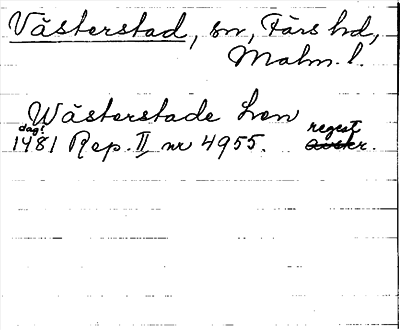 Västerstad, sn, Färs hd,
Malm. l.
Wästerstade hen
dag?
1481 Rep. II nr 4955. regest
avskr.